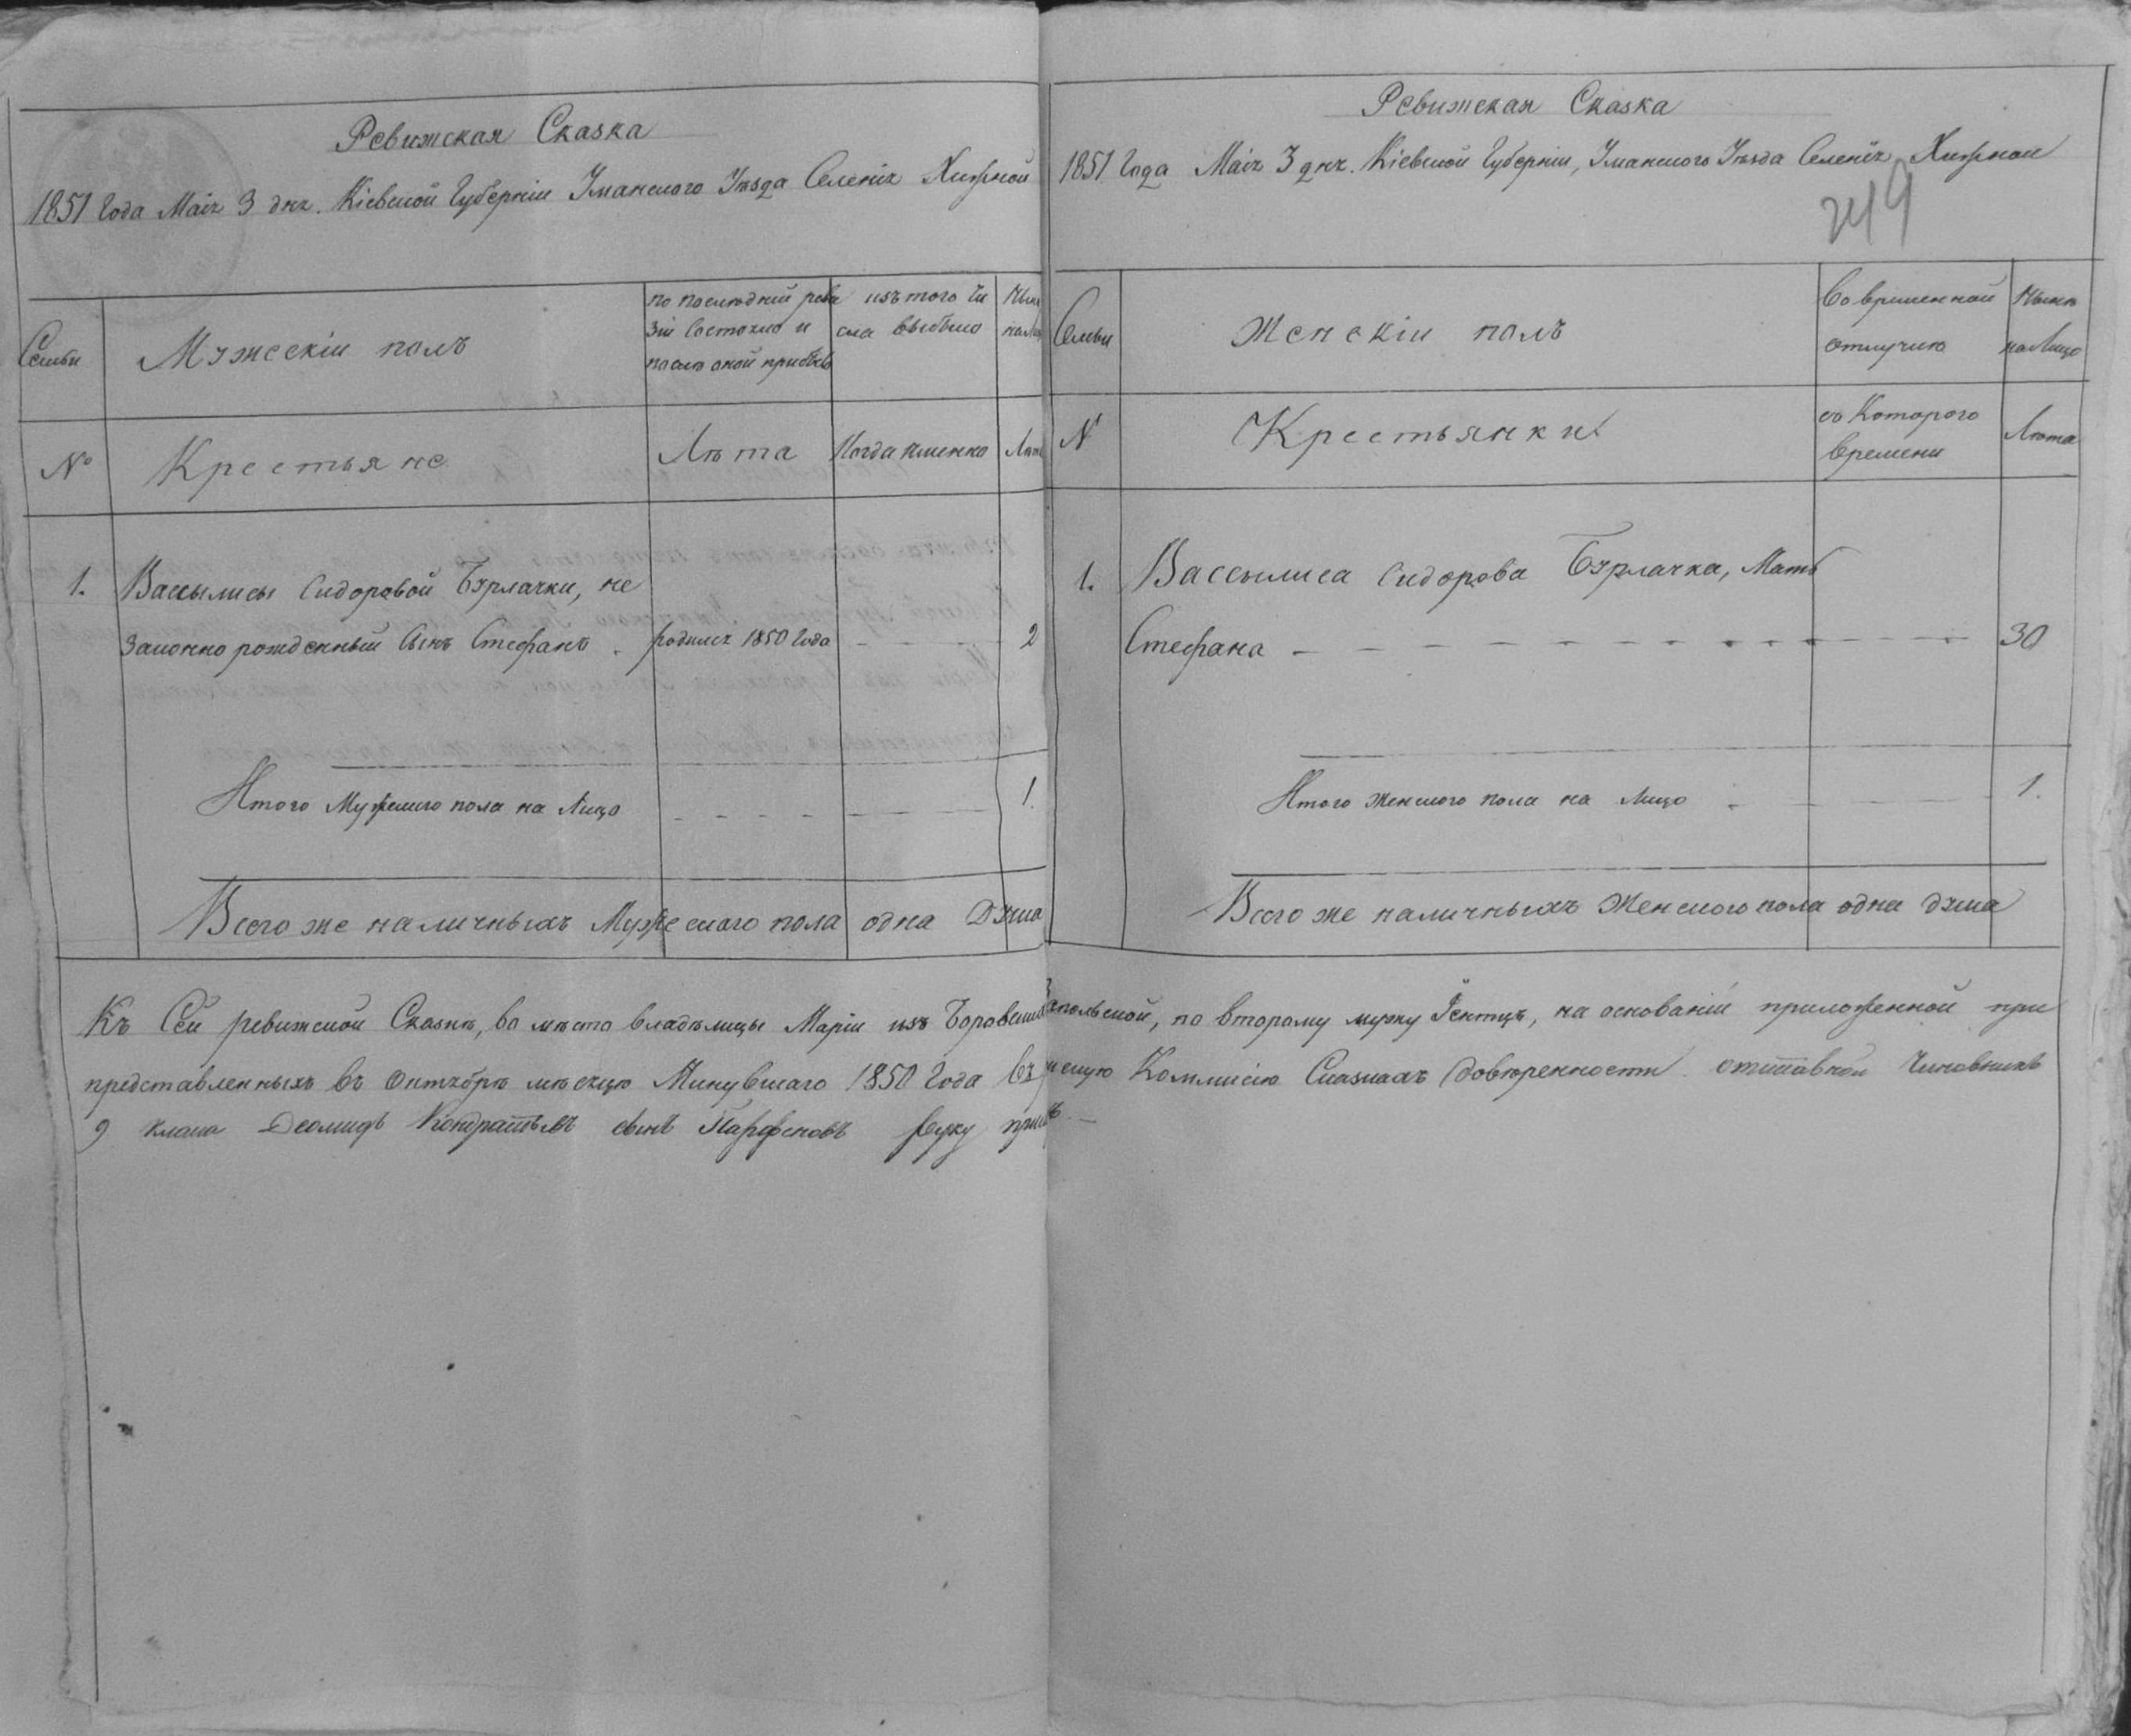 Ревижская Сказка
1851 Года Маія 3 дня. Кіевской Губерніи Уманского Уѣзда Селенія Хижной
Семьи
Мужескіи полъ
по последней реви
зіи Состояло и
после оной прибыло
изъ того Чи
сла выбыло
Ныне
на Лицо
№
Крестьяне
Лѣта
Когда именно
Лѣта
1. Вассылисы Сидоровой Бурлачки, не
законно рожденный Сынъ Стефанъ - родился 1850 Года - - - 2
Итого Мужеского пола на Лицо - - - - 1.
Всего же наличныхъ Мужеского пола одна Душа
Ревижская Сказка
1851 Года Маія 3 дня. Кіевской Губерніи, Уманского Уѣзда Селенія Хижной
249
Семьи
Женскіи полъ
Во временной
отлучке
Ныне
на Лицо
№
Крестьянки
съ Которого
Времени
Лѣта
1. Вассылиса Сидорова Бурлачка, Мать
Стефана - - - - - - - - 30
Итого Женского пола на Лицо - - 1.
Всего же наличныхъ Женского пола одна душа
Къ Сей ревижской Сказкѣ, во мѣсто владѣлицы Маріи изъ по второму мужу на основаніи приложенной при
представленныхъ въ Октябрѣ мѣсяцѣ Минувшаго 1850 Года въ Коммисію Сказкахъ довѣренности отставной Чиновникъ
9 класа Деомидъ Кондратьевъ сынъ Парфеновъ руку